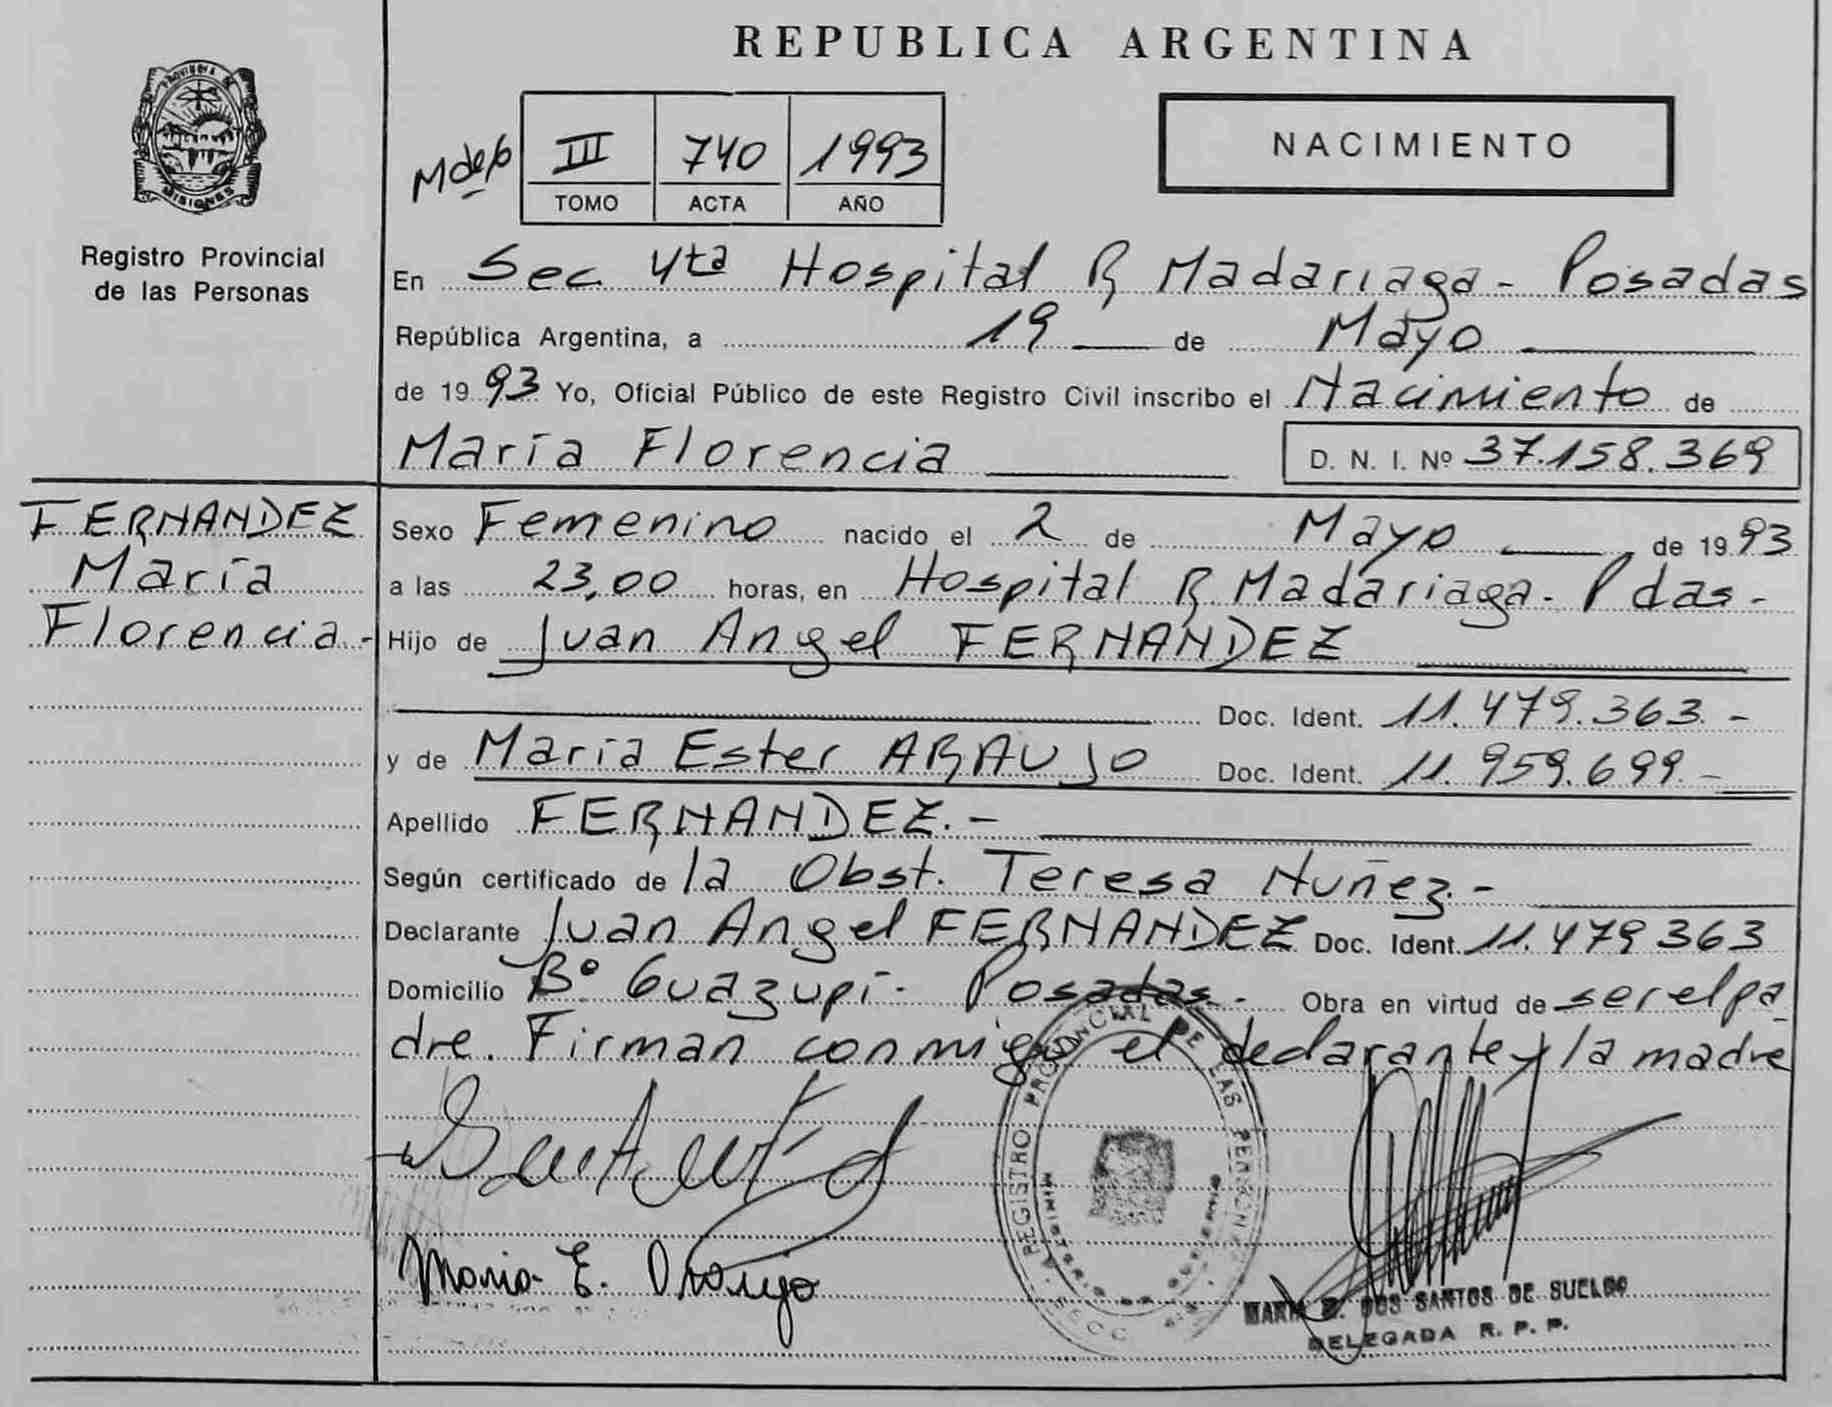 REPUBLICA ARGENTINA
PROVINCIA DE
MISIONES
Registro Provincial
de las Personas
III 740 1993
TOMO ACTA AÑO
NACIMIENTO
En Sec. 4ta Hospital R Madariaga - Posadas
República Argentina, a 19 de Mayo
de 1993 Yo, Oficial Público de este Registro Civil inscribo el Nacimiento de
María Florencia D. N. I. Nº 37.158.369
FERNANDEZ
María
Florencia.-
Sexo Femenino nacido el 2 de Mayo de 1993
a las 23,00 horas, en Hospital R. Madariaga - Pdas -
Hijo de Juan Angel FERNANDEZ
Doc. Ident. 11.479.363.-
y de María Ester ARAUJO Doc. Ident. 11.959.699.-
Apellido FERNANDEZ.-
Según certificado de la Obst. Teresa Nuñez.-
Declarante Juan Angel FERNANDEZ Doc. Ident. 11.479 363
Domicilio Bº Guazupí - Posadas.- Obra en virtud de ser el pa
dre. Firman conmigo el declarante y la madre
REGISTRO PROVINCIAL DE LAS PERSONAS
MINISTERIO DE GOBIERNO
SECC.
Maria E. Araujo
DOS SANTOS DE SUELDO
DELEGADA R. P. P.